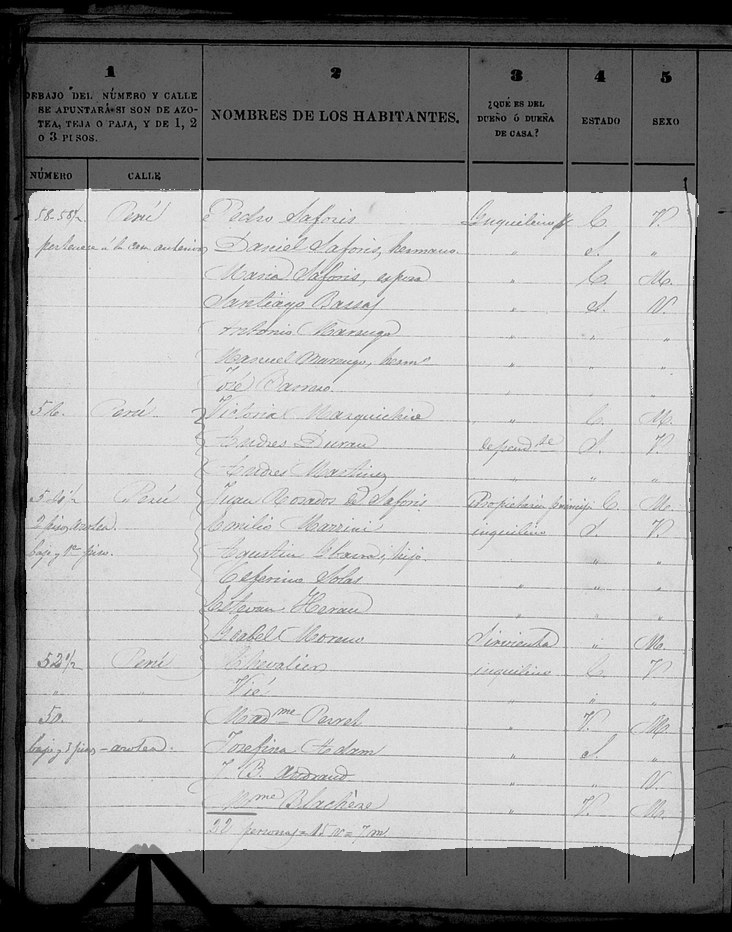 1 2 3 4 5
DEBAJO DEL NÚMERO Y CALLE
SE APUNTARÁ SI SON DE AZO-
TEA, TEJA O PAJA, Y DE 1, 2
O 3 PISOS.
NOMBRES DE LOS HABITANTES.
¿QUÉ ES DEL
DUEÑO Ó DUEÑA
DE CASA?
ESTADO
SEXO
NÚMERO CALLE
58-58½ Perú Pedro Saforis Inquilino C. V.
pertenece á la casa anterior Daniel Saforis, hermano " S. "
Maria Saforis, esposa " C. M.
Santiago Bassas " S. V.
Antonio Marengo " " "
Manuel Marengo, herm.º " " "
José " " "
56. Perú Victoria " C. M.
Andres Duran depend.te S. V.
Andres Martinez " " "
54½ Perú Juan Rosados de Saforis Propietaria C. M.
2 pisos azotea. Emilio Mazzini inquilino S. V.
bajo y 1er piso. Agustin hijo " " "
Ceferino Solas " " "
Estevan Heran " " "
Isabel Moreno Sirvienta " M.
52½ Perú Chevalier inquilino C. V.
" " Vié " " "
50. " Mad.me Perret " V. M.
bajo y 3 pisos - azotea. Josefina Adam " S. "
J. B. Andraud " " V.
Mme Blachère " V. M.
22 personas = 15 v = 7 m